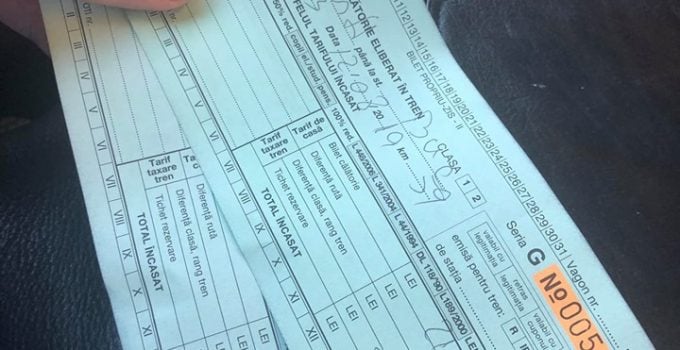 |11|12|13|14|15|16|17|18|19|20|21|22|23|24|25|26|27|28|29|30|31| Vagon nr.
BILET PROPRIU-ZIS - II
Seria G No 005
ĂTORIE ELIBERAT ÎN TREN
CLASA 1 2
valabil cu legitimația
retras legitimația
valabil cu cuponu
emisă pentru tren: R
de stația
Data 20 19 km
până la st.
FELUL TARIFULUI ÎNCASAT
50% red. copii el./stud. pens. 100% red. L 448/2006 L 341/2004 L 44/1994 DL 118/90 L 189/2000
Tarif taxare tren
Tarif de casă
Bilet călătorie
Diferență rută
Diferență clasă, rang tren
Tichet rezervare
TOTAL ÎNCASAT
LEI
LEI
LEI
LEI
LEI
II III IV V VI VII VIII IX X XI
Tarif taxare tren
Diferență rută
Diferență clasă, rang tren
Tichet rezervare
TOTAL ÎNCASAT
LEI
LEI
LEI
II III IV V VI VII VIII IX X XI XII